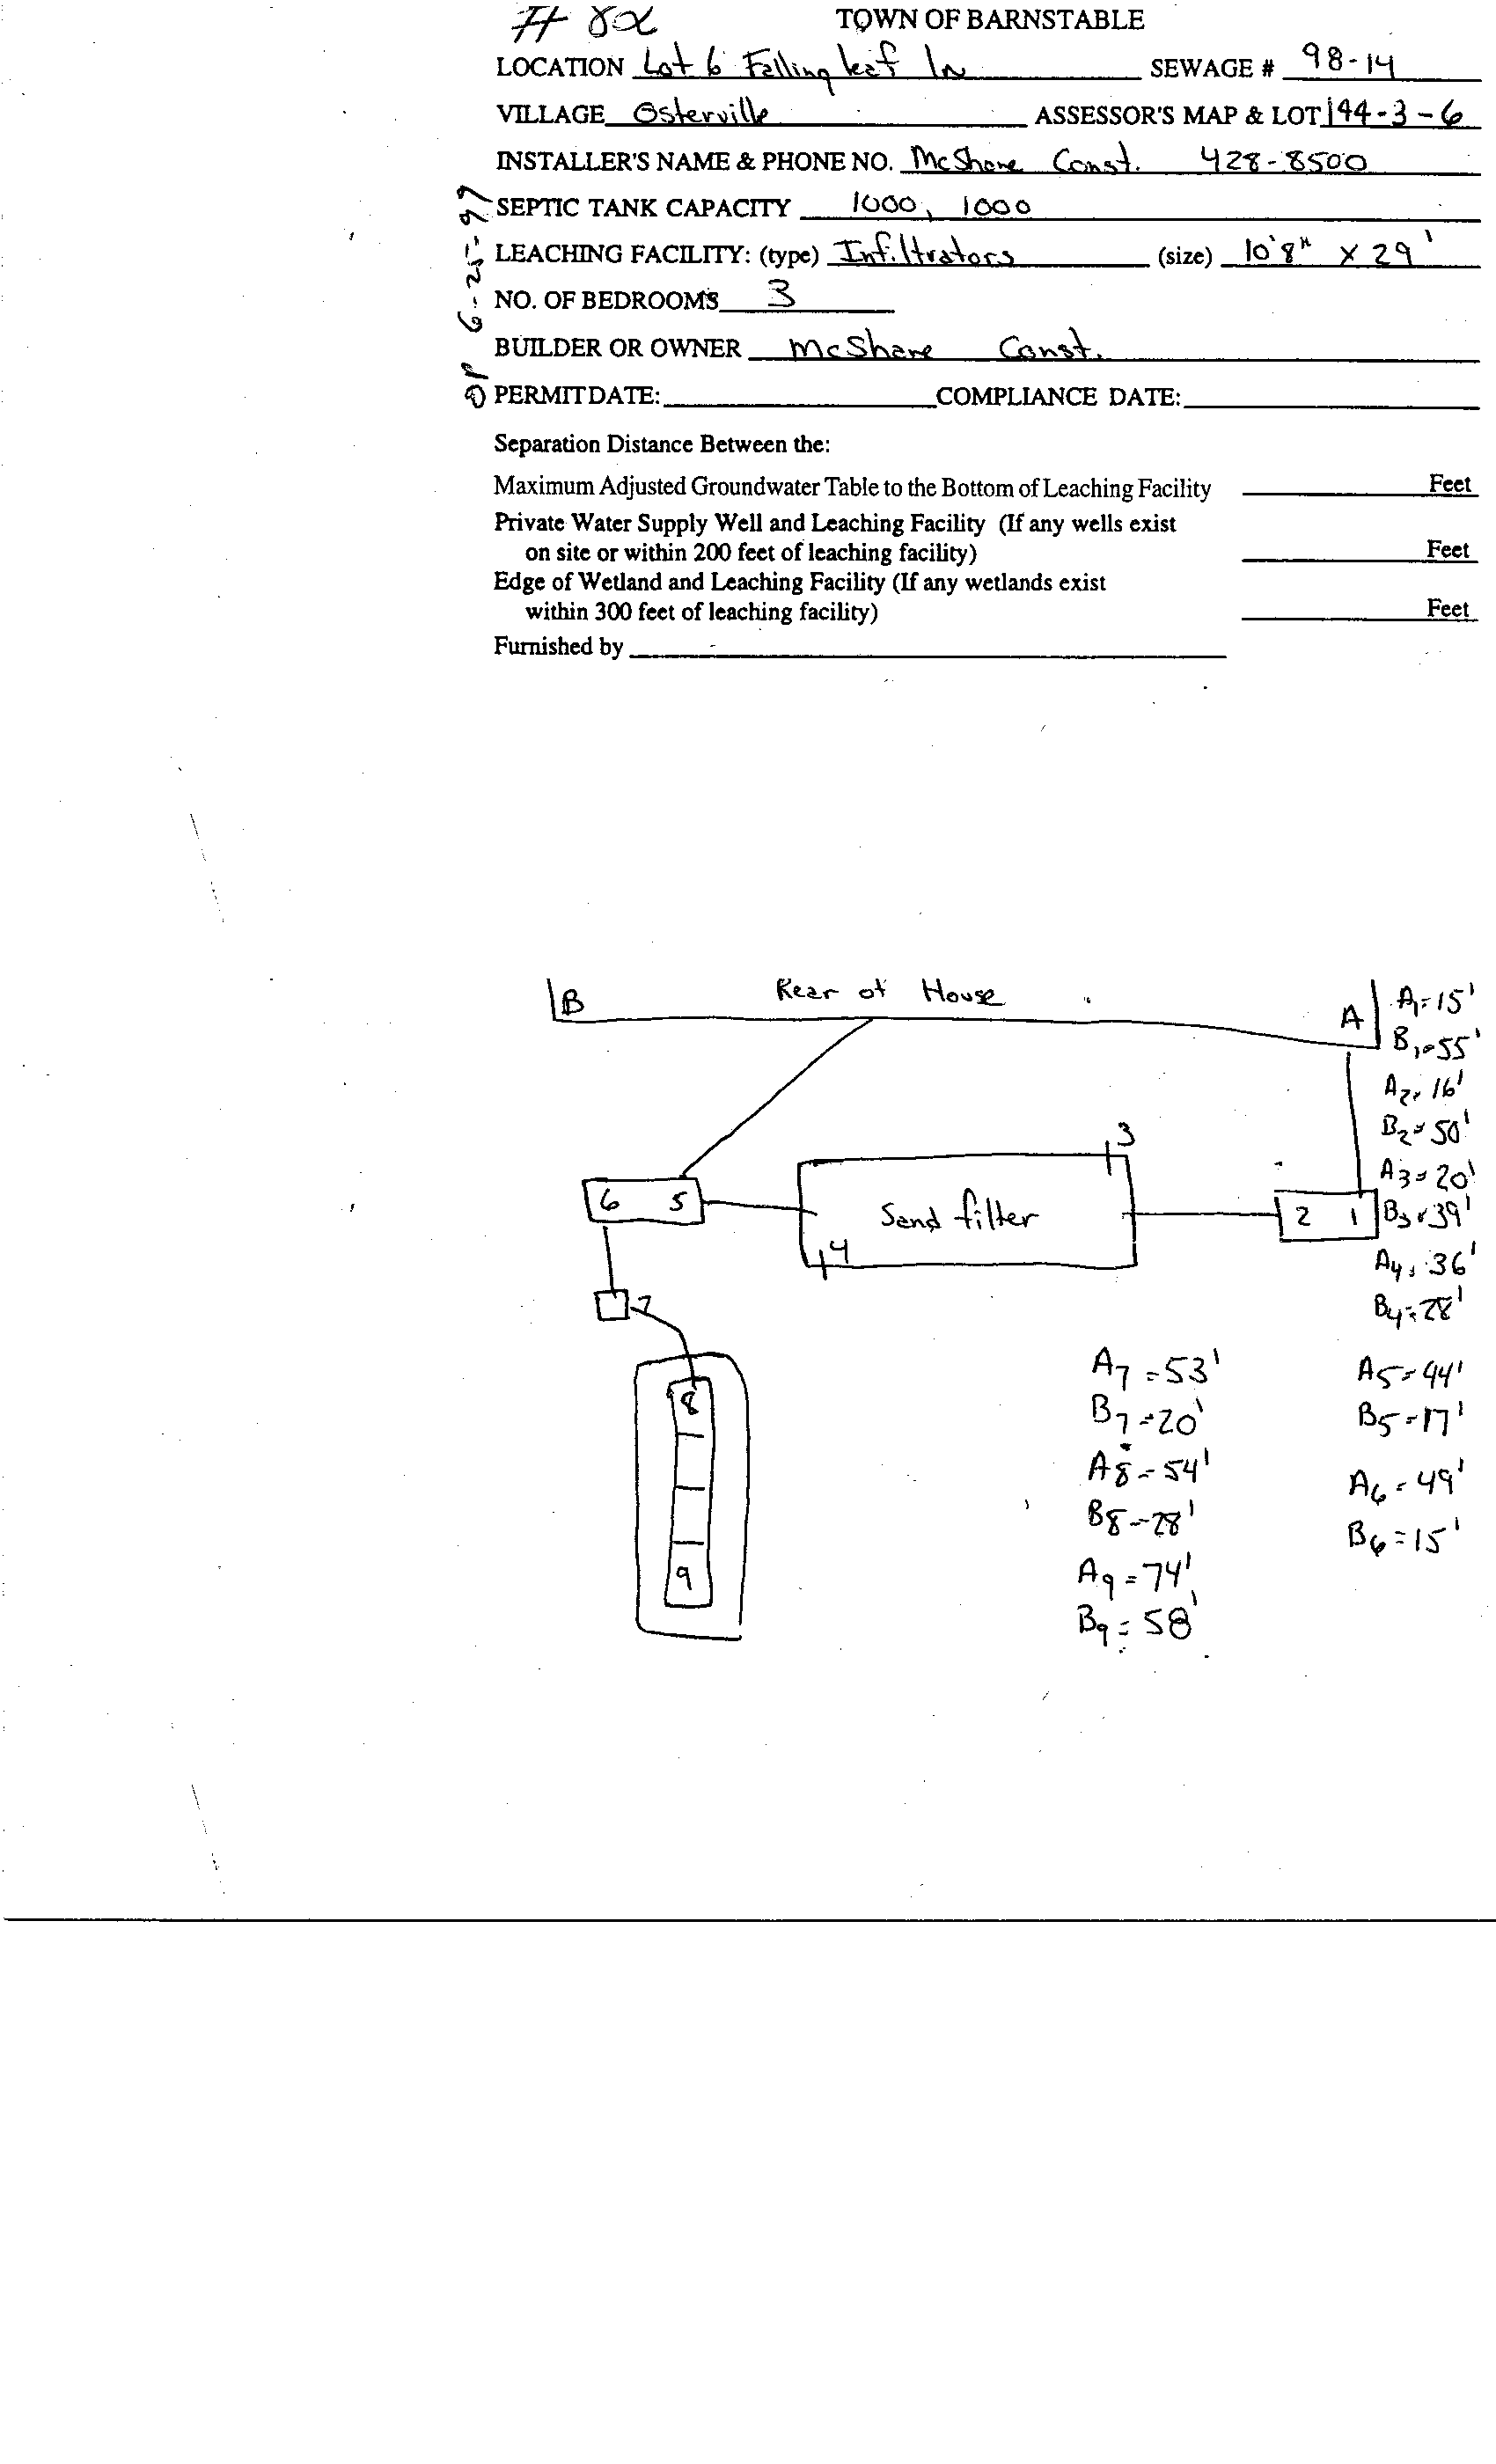 # 82
TOWN OF BARNSTABLE
LOCATION Lot 6 Falling leaf Ln SEWAGE # 98-14
VILLAGE Osterville ASSESSOR'S MAP & LOT 144-3-6
INSTALLER'S NAME & PHONE NO. McShane Const. 428-8500
SEPTIC TANK CAPACITY 1000, 1000
LEACHING FACILITY: (type) Infiltrators (size) 10'8" X 29'
NO. OF BEDROOMS 3
BUILDER OR OWNER McShane Const.
PERMIT DATE: COMPLIANCE DATE:
6-25-97
Separation Distance Between the:
Maximum Adjusted Groundwater Table to the Bottom of Leaching Facility Feet
Private Water Supply Well and Leaching Facility (If any wells exist
on site or within 200 feet of leaching facility) Feet
Edge of Wetland and Leaching Facility (If any wetlands exist
within 300 feet of leaching facility) Feet
Furnished by
B Rear of House A
A1=15'
B1=55'
A2=16'
B2=50'
3
A3=20'
6 5 Sand filter 2 1 B3=39'
4
A4=36'
7
B4=28'
A7=53' A5=44'
8
B7=20' B5=17'
A8=54' A6=49'
B8=28' B6=15'
9
A9=74'
B9=58'